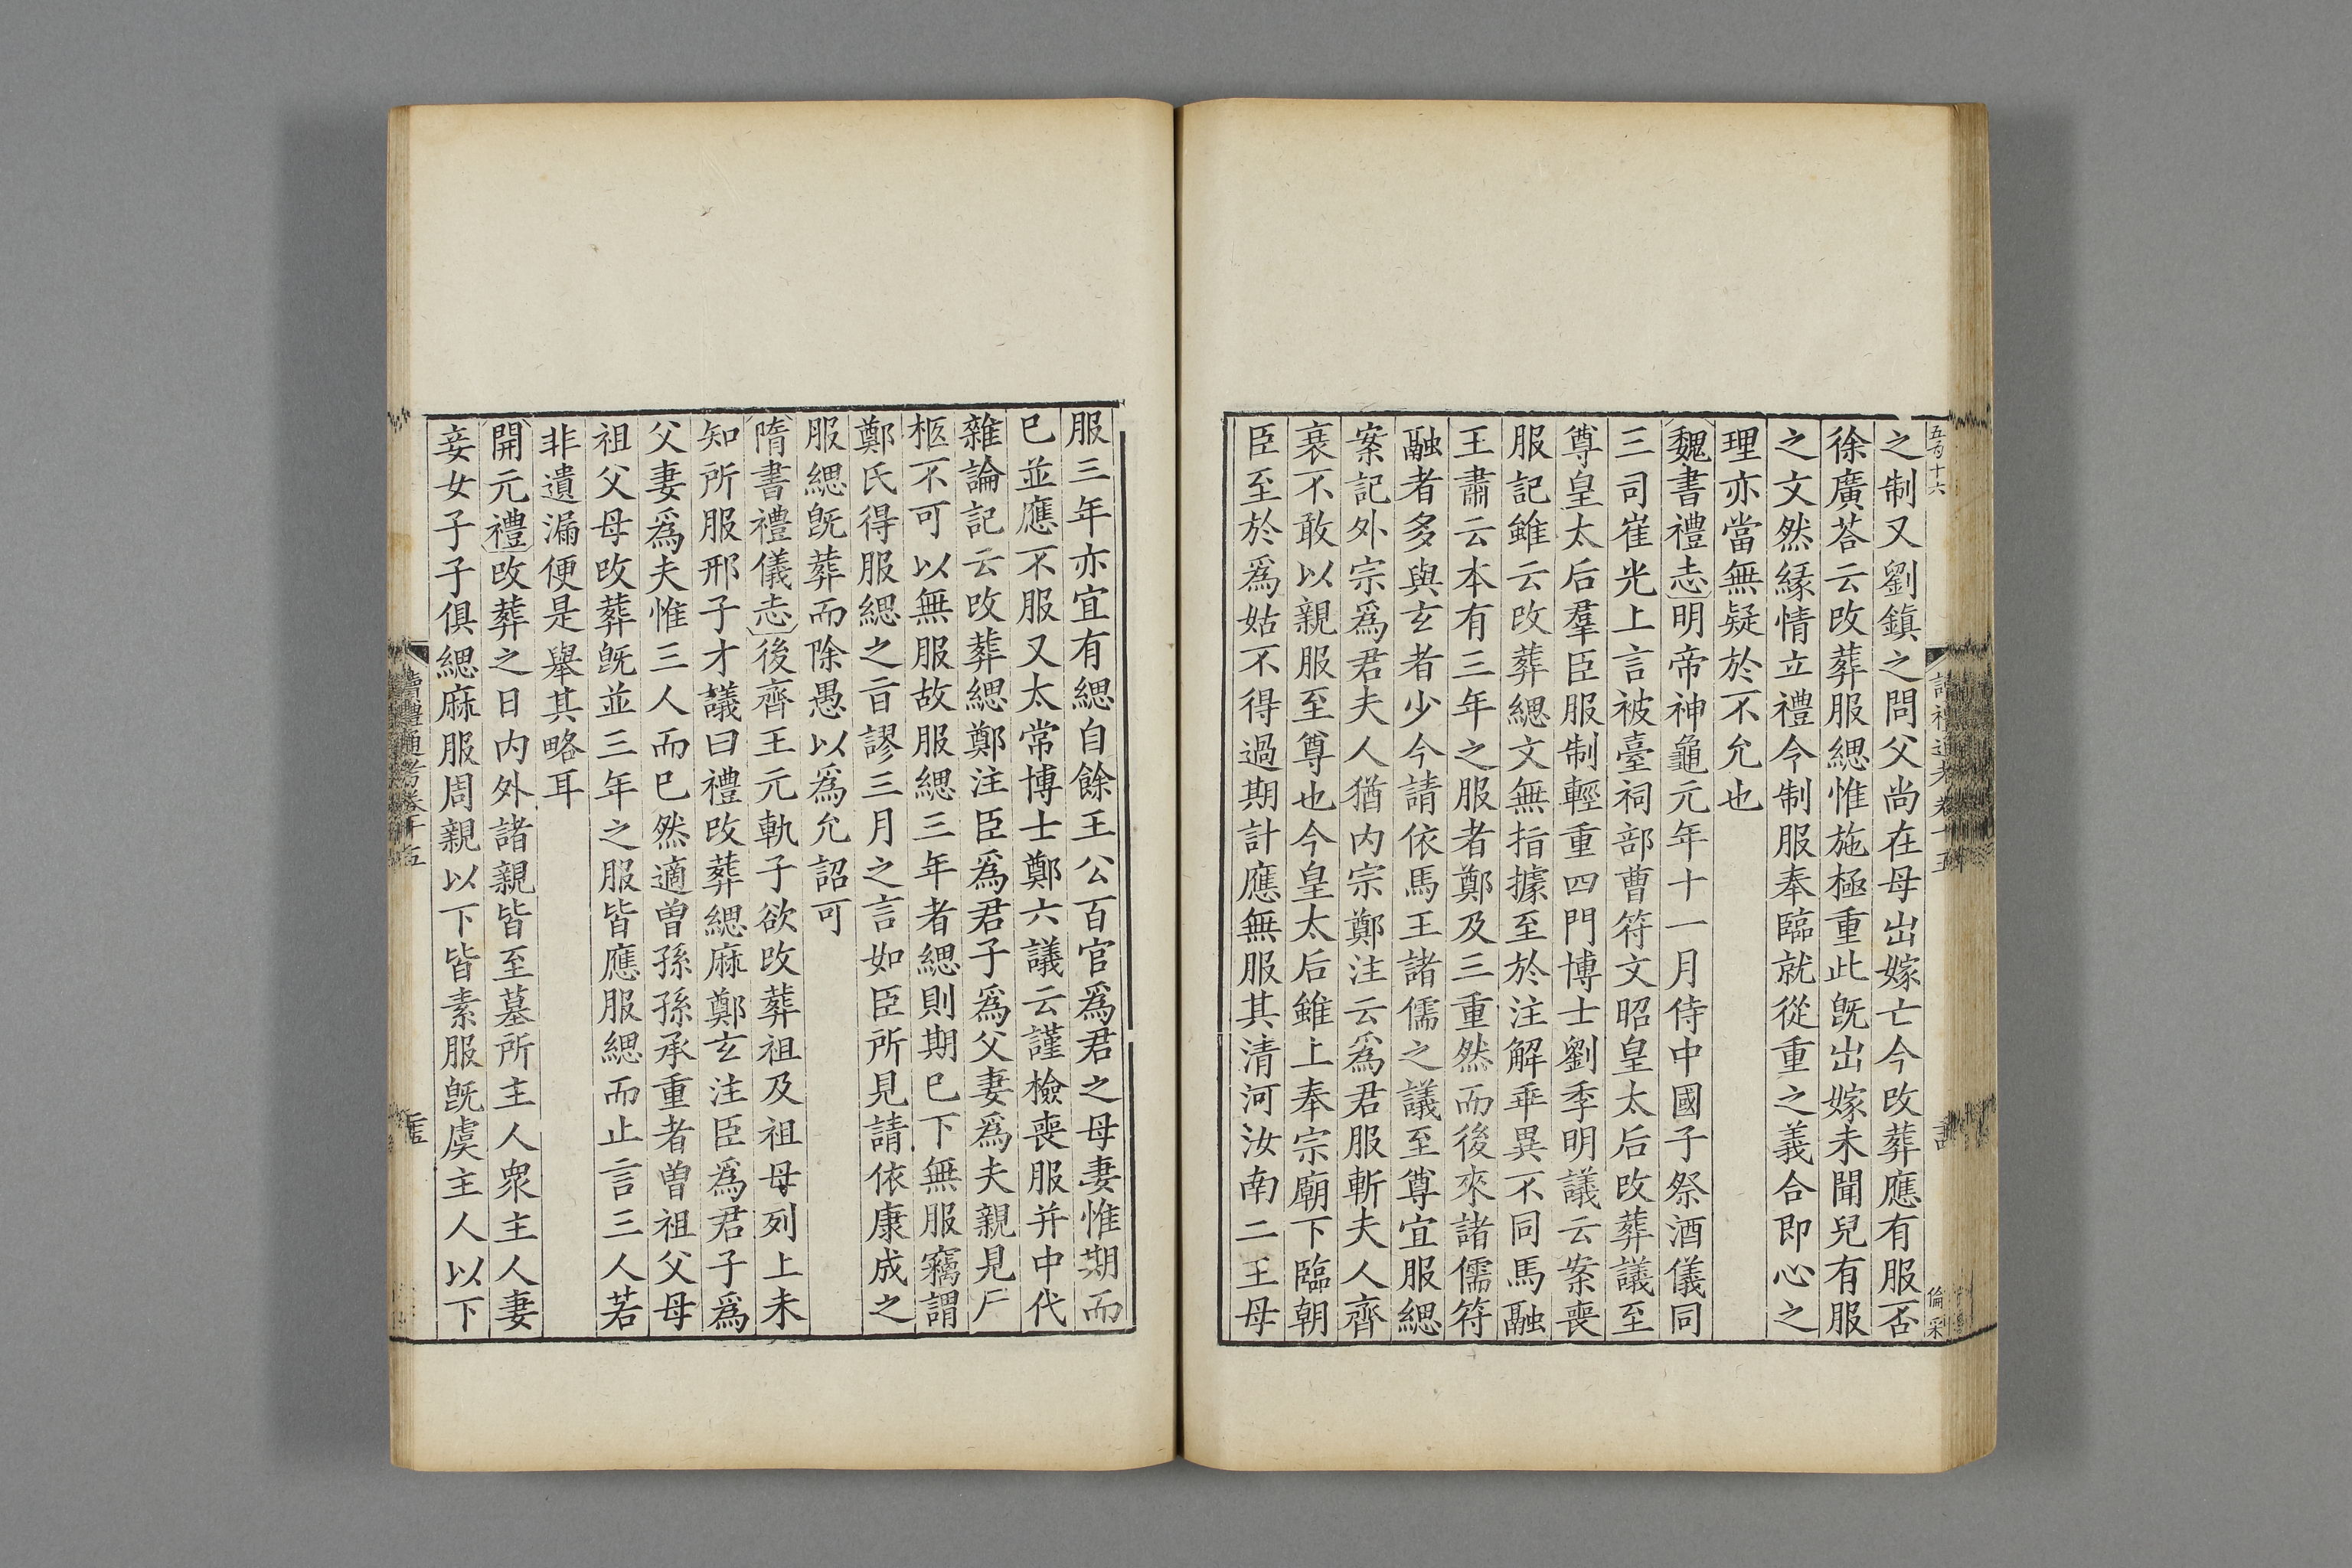 五百十六
讀禮通考卷十五
倫采
之制又劉鎮之問父尚在母出嫁亡今改葬應有服否
徐廣荅云改葬服緦惟施極重此旣出嫁未聞兒有服
之文然緣情立禮今制服奉臨就從重之義合即心之
理亦當無疑於不允也
魏書禮志明帝神龜元年十一月侍中國子祭酒儀同
三司崔光上言被臺祠部曹符文昭皇太后改葬議至
尊皇太后羣臣服制輕重四門博士劉季明議云案喪
服記雖云改葬緦文無指據至於注解乖異不同馬融
王肅云本有三年之服者鄭及三重然而後來諸儒符
融者多與玄者少今請依馬王諸儒之議至尊宜服緦
案記外宗爲君夫人猶内宗鄭注云爲君服斬夫人齊
衰不敢以親服至尊也今皇太后雖上奉宗廟下臨朝
臣至於爲姑不得過期計應無服其清河汝南二王母
服三年亦宜有緦自餘王公百官爲君之母妻惟期而
已並應不服又太常博士鄭六議云謹檢喪服并中代
雜論記云改葬緦鄭注臣爲君子爲父妻爲夫親見尸
柩不可以無服故服緦三年者緦則期已下無服竊謂
鄭氏得服緦之㫖謬三月之言如臣所見請依康成之
服緦旣葬而除愚以爲允詔可
隋書禮儀志後齊王元軌子欲改葬祖及祖母列上未
知所服邢子才議曰禮改葬緦麻鄭玄注臣爲君子爲
父妻爲夫惟三人而已然適曽孫孫承重者曽祖父母
祖父母改葬旣並三年之服皆應服緦而止言三人若
非遺漏便是舉其略耳
開元禮改葬之日内外諸親皆至墓所主人衆主人妻
妾女子子俱緦麻服周親以下皆素服旣虞主人以下
讀禮通考卷十五